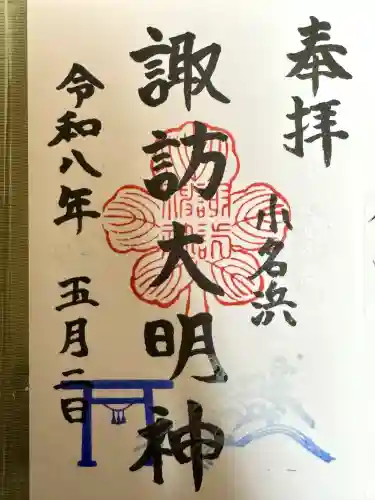 奉拝
小名浜
諏訪大明神
令和八年 五月二日